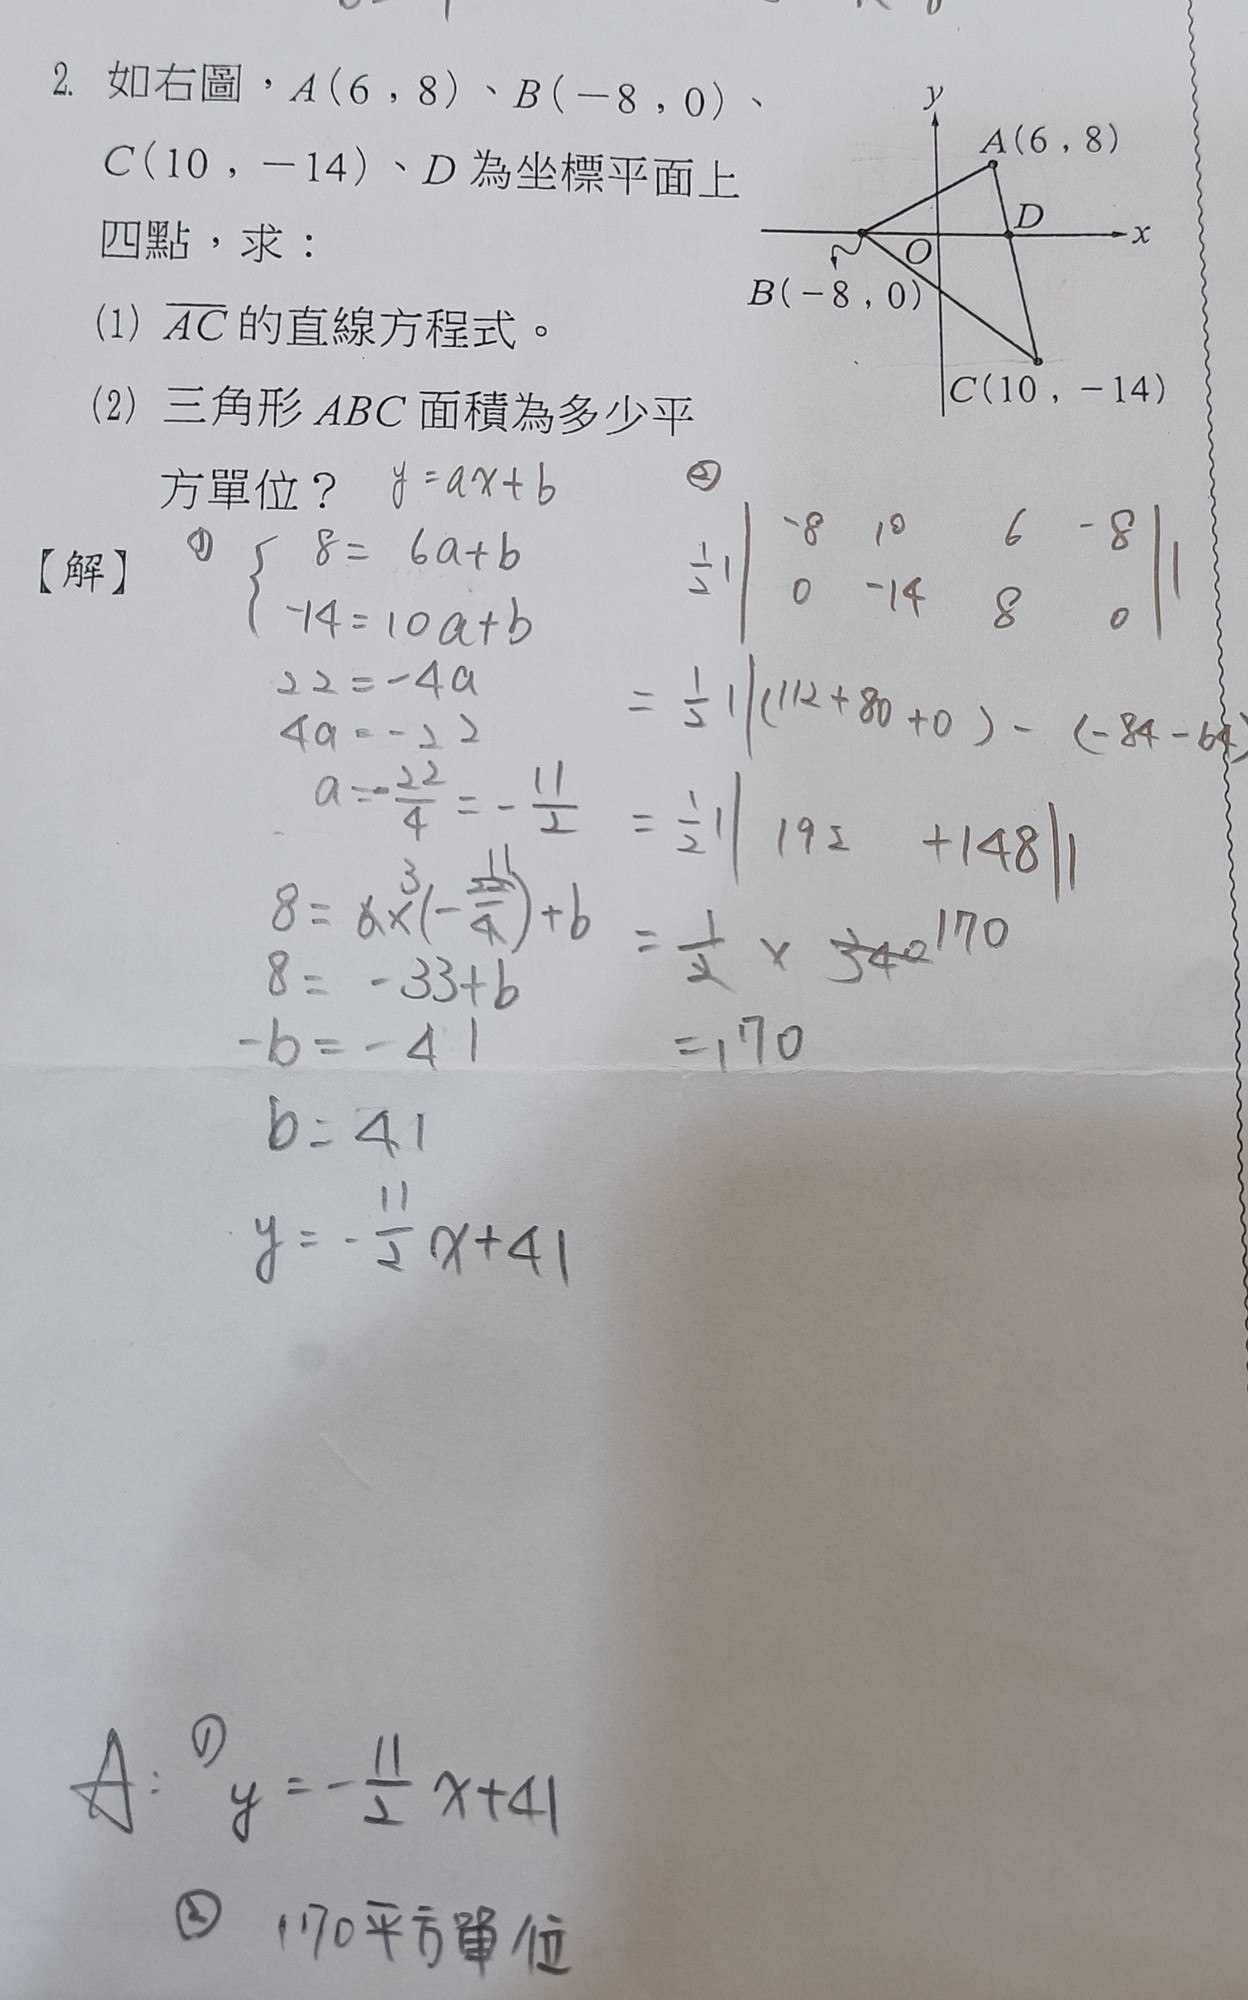 2. 如右圖，A(6，8)、B(－8，0)、
C(10，－14)、D 為坐標平面上
四點，求：
(1) AC 的直線方程式。
(2) 三角形 ABC 面積為多少平
方單位？ y=ax+b
y
A(6，8)
D
x
O
B(－8，0)
C(10，－14)
【解】
① { 8= 6a+b
-14=10a+b
22=-4a
4a=-22
a=-22/4=-11/2
8=6×3(-22/4 11)+b
8= -33+b
-b=-41
b=41
y=-11/2x+41
②
1/2||-8 10 6 -8||
0 -14 8 0
=1/2||(112+80+0)-(-84-64)
=1/2||192 +148||
=1/2×340 170
=170
A: ① y=-11/2x+41
② 170平方單位